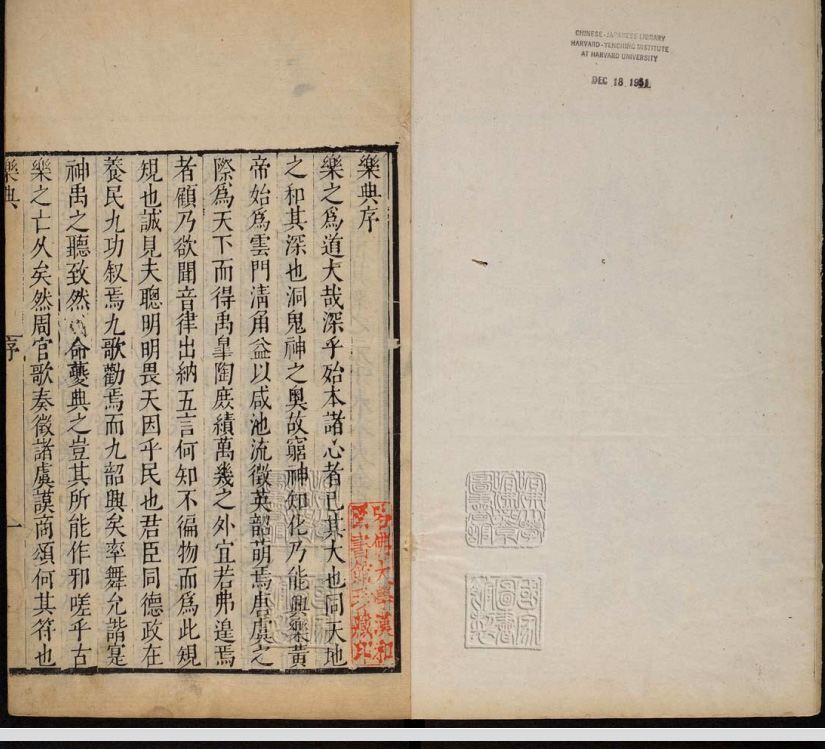 CHINESE-JAPANESE LIBRARY
HARVARD-YENCHING INSTITUTE
AT HARVARD UNIVERSITY
DEC 18 1951
樂典序
樂之爲道大哉深乎始本諸心者已其大也同天地
之和其深也洞鬼神之奧故窮神知化乃能興樂黃
帝始爲雲門淸角益以咸池流徵英韶萌焉唐虞之
際爲天下而得禹臯陶庶績萬幾之外宜若弗遑焉
者顧乃欲聞音律出納五言何知不徧物而爲此規
規也誠見夫聰明明畏天因乎民也君臣同德政在
養民九功叙焉九歌勸焉而九韶興矣率舞允諧寔
神禹之聽致然命夔典之豈其所能作邪嗟乎古
樂之亡久矣然周官歌奏徵諸虞謨商頌何其符也
樂典 序 一
哈佛大學漢和
圖書館珍藏印